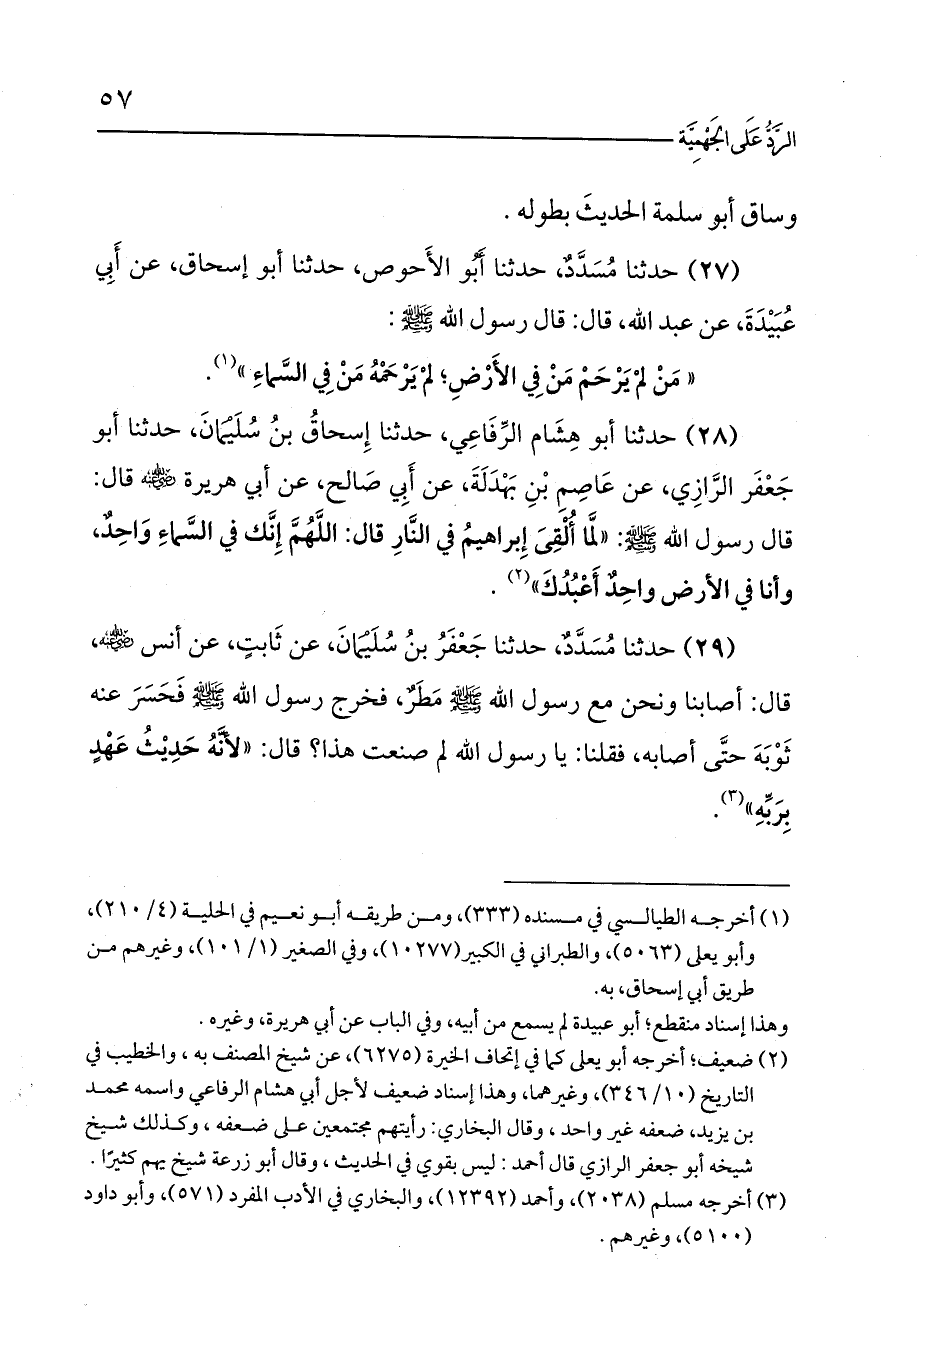 ٥٧
الرَّدُّ عَلَى الجَهْمِيَّة
وساق أبو سلمة الحديثَ بطوله .
(٢٧) حدثنا مُسَدَّدٌ، حدثنا أَبُو الأَحوص، حدثنا أبو إسحاق، عن أَبِي
عُبَيْدَةَ، عن عبد الله، قال: قال رسول الله ﷺ :
« مَنْ لمْ يَرْحَمْ مَنْ فِي الأَرْضِ؛ لمْ يَرْحَمْهُ مَنْ فِي السَّماءِ »(١).
(٢٨) حدثنا أبو هِشَام الرِّفَاعِي، حدثنا إِسحاقُ بنُ سُلَيْمَانَ، حدثنا أبو
جَعْفَر الرَّازِي، عن عَاصِمِ بْنِ بَهْدَلَةَ، عن أَبِي صَالح، عن أبي هريرة ﵁ قال:
قال رسول الله ﷺ: «لَمَّا أُلْقِيَ إبراهيمُ في النَّارِ قال: اللَّهُمَّ إِنَّك في السَّماءِ وَاحِدٌ،
وأنا في الأرض واحِدٌ أَعْبُدُكَ»(٢) .
(٢٩) حدثنا مُسَدَّدٌ، حدثنا جَعْفَرُ بنُ سُلَيْمَانَ، عن ثَابتٍ، عن أنس ﵁،
قال: أصابنا ونحن مع رسول الله ﷺ مَطَرٌ، فخرج رسول الله ﷺ فَحَسَرَ عنه
ثَوْبَهَ حتَّى أصابه، فقلنا: يا رسول الله لم صنعت هذا؟ قال: «لأَنَّهُ حَدِيْثُ عَهْدٍ
بِرَبِّهِ»(٣).
(١) أخرجه الطيالسي في مسنده (٣٣٣)، ومن طريقه أبو نعيم في الحلية (٤/ ٢١٠)،
وأبو يعلى (٥٠٦٣)، والطبراني في الكبير(١٠٢٧٧)، وفي الصغير (١/ ١٠١)، وغيرهم من
طريق أبي إسحاق، به.
وهذا إسناد منقطع؛ أبو عبيدة لم يسمع من أبيه، وفي الباب عن أبي هريرة، وغيره .
(٢) ضعيف؛ أخرجه أبو يعلى كما في إتحاف الخيرة (٦٢٧٥)، عن شيخ المصنف به ، والخطيب في
التاريخ (١٠/ ٣٤٦)، وغيرهما، وهذا إسناد ضعيف لأجل أبي هشام الرفاعي واسمه محمد
بن يزيد، ضعفه غير واحد ، وقال البخاري: رأيتهم مجتمعين على ضعفه ، وكذلك شيخ
شيخه أبو جعفر الرازي قال أحمد : ليس بقوي في الحديث ، وقال أبو زرعة شيخ يهم كثيرًا .
(٣) أخرجه مسلم (٢٠٣٨)، وأحمد (١٢٣٩٢)، والبخاري في الأدب المفرد (٥٧١)، وأبو داود
(٥١٠٠)، وغيرهم .